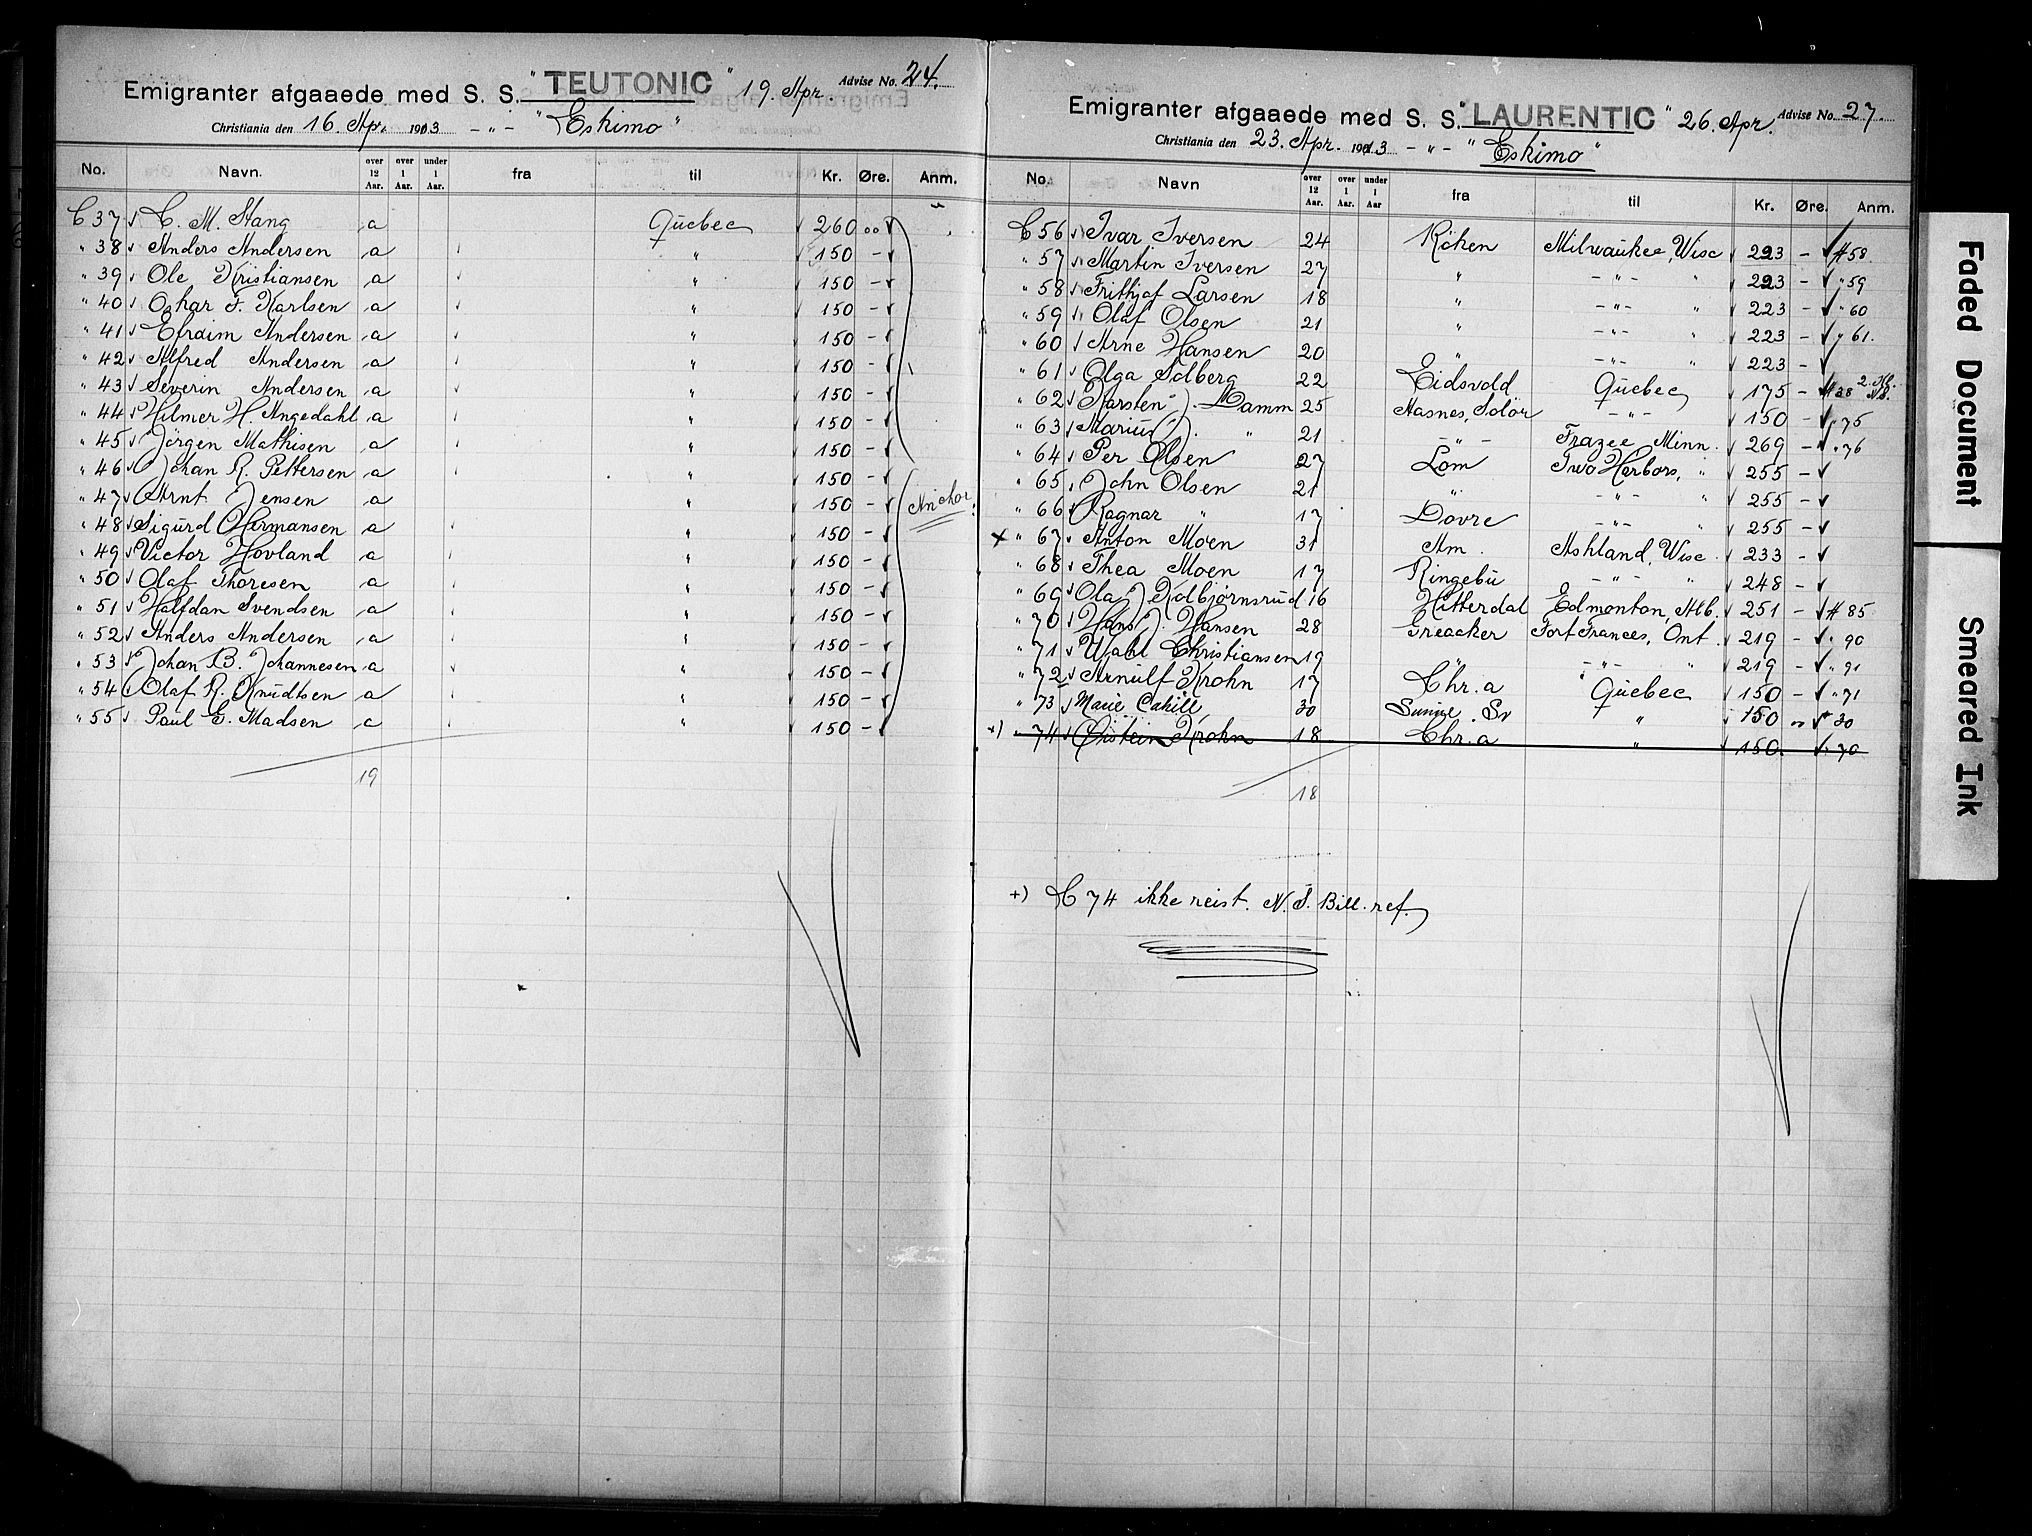 Emigranter afgaaede med S. S. "TEUTONIC" 19. Apr. Advise No. 24.
Christiania den 16. Apr. 1913 - " - "Eskimo"
No. Navn. over 12 Aar. over 1 Aar. under 1 Aar. fra til Kr. Øre. Anm.
C 37 C. M. Stang a Quebec 260 00
" 38 Anders Andersen a " 150 -
" 39 Ole Kristiansen a " 150 -
" 40 Oskar F. Karlsen a " 150 -
" 41 Efraim Andersen a " 150 -
" 42 Alfred Andersen a " 150 -
" 43 Severin Andersen a " 150 -
" 44 Hilmer H. Angedahl a " 150 -
" 45 Jörgen Mathisen a " 150 -
" 46 Johan R. Pettersen a " 150 -
" 47 Arnt Jensen a " 150 - Anchor
" 48 Sigurd Hermansen a " 150 -
" 49 Victor Hovland a " 150 -
" 50 Olaf Thoresen a " 150 -
" 51 Halfdan Svendsen a " 150 -
" 52 Anders Andersen a " 150 -
" 53 Johan B. Johannesen a " 150 -
" 54 Olaf R. Knudtsen a " 150 -
" 55 Paul G. Madsen a " 150 -
19
Emigranter afgaaede med S. S. "LAURENTIC" 26. Apr. Advise No. 27.
Christiania den 23. Apr. 1913 - " - "Eskimo"
No. Navn over 12 Aar. over 1 Aar. under 1 Aar fra til Kr. Øre. Anm.
C 56 Ivar Iversen 24 Röken Milwaukee, Wisc 223 - # 58
" 57 Martin Iversen 27 " - " - " 223 - " 59
" 58 Frithjof Larsen 18 " - " - " 223 - " 60
" 59 Olaf Olsen 21 " - " - " 223 - " 61.
" 60 Arne Hansen 20 " - " - " 223 -
" 61 Olga Solberg 22 Eidsvold Quebec 175 - # 28 2. Kl.
" 62 Karsten J. Lamm 25 Aasnes, Solör - " - 150 - " 75
" 63 Marius J. " 21 - " - Frazee Minn. 269 - " 76
" 64 Per Olsen 27 Lom Two Harbors, " 255 -
" 65 John Olsen 21 " - " - " 255 -
" 66 Ragnar " 17 Dovre - " - " 255 -
x " 67 Anton Moen 31 Am. Ashland, Wisc. 233 -
" 68 Thea Moen 17 Ringebu - " - " 248 -
" 69 Ola J Kolbjørnsrud 16 Hitterdal Edmonton, Alb. 251 - # 85
" 70 Hans J. Hansen 28 Greaaker Fort Frances, Ont. 219 - " 90
" 71 Wahl Christiansen 19 " - " - " 219 - " 91
" 72 Arnulf Krohn 17 Chr.a Quebec 150 - " 71
" 73 Marie Cahill 30 Sv 150 " 30
+) " 74 Øistein Krohn 18 Chr.a " 150. " 70
18
+) C 74 ikke reist. N. S. Bill. ref.
Faded Document
Smeared Ink